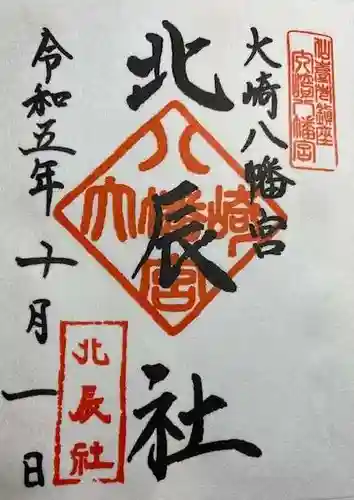 仙臺岩鎮座
大崎八幡宮
大崎八幡宮
北辰社
八
大幡崎
宮
令和五年十月一日
北辰社